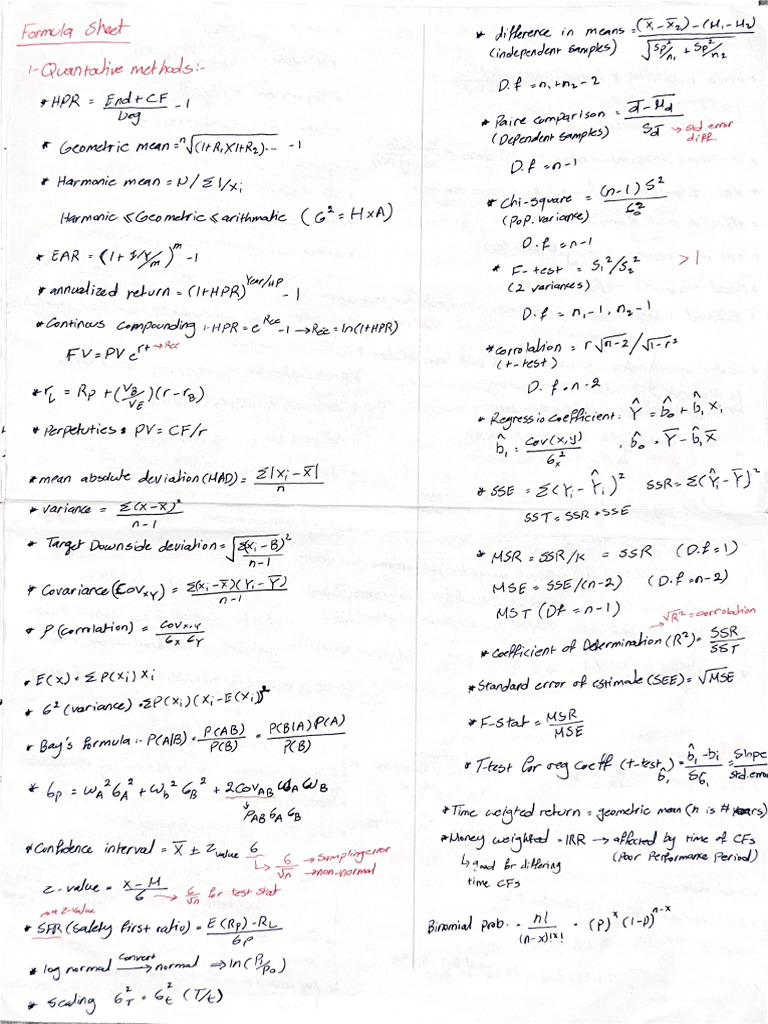 Formula Sheet
1- Quantative methods:-
* HPR = End + CF / Beg - 1
* Geometric mean = ⁿ√(1+R₁)(1+R₂)... - 1
* Harmonic mean = N / Σ1/xᵢ
Harmonic ≤ Geometric ≤ arithmatic (G² = H x A)
* EAR = (1 + I/Y/m)ᵐ - 1
* annualized return = (1+HPR)^Year/HP - 1
* Continous compounding :- HPR = e^Rcc - 1 → Rcc = ln(1+HPR)
FV = PV e^rt → Rcc
* r_L = Rp + (V_B/V_E)(r - r_B)
* Perpetuties: PV = CF/r
* mean absolute deviation (MAD) = Σ|xᵢ - x̄| / n
* variance = Σ(x - x̄)² / n-1
* Target Downside deviation = √Σ(xᵢ - B)² / n-1
* Covariance (Cov_xy) = Σ(xᵢ - x̄)(Yᵢ - Ȳ) / n-1
* ρ (corrolation) = Cov x,y / σx σy
* E(x) = ΣP(xᵢ) xᵢ
* σ² (variance) = ΣP(xᵢ)(xᵢ - E(x))²
* Bay's formula :- P(A|B) = P(AB) / P(B) = P(B|A) P(A) / P(B)
* σp = ω_A² σ_A² + ω_b² σ_B² + 2Cov_AB ω_A ω_B
↳ ρ_AB σ_A σ_B
* Confidence interval = x̄ ± z value σ
↳ σ/√n → sampling error
→ non-normal
z-value = x - M / σ → σ/√n for test stat
→ a z-value
* SFR (safety first ratio) = E(Rp) - R_L / σp
* log normal convert → normal ⇒ ln(P₁/P₀)
* Scaling σ²_T = σ²_t (T/t)
* difference in means = (x̄ - x̄₂) - (M₁ - M₂) / √Sp²/n₁ + Sp²/n₂
(independent samples)
D.f = n₁ + n₂ - 2
* Paire comparison = d̄ - M_d / S_d̄ → std error diff.
(Dependent samples)
D.f = n-1
* Chi-square = (n-1) S² / σ₀²
(pop. variance)
D.f = n-1
* F-test = S₁²/S₂² > 1
(2 variances)
D.f = n₁-1, n₂-1
* corrolation = r√n-2 / √1-r²
(t-test)
D.f = n-2
* Regressio coefficient: Ŷ = b̂₀ + b̂₁ Xᵢ
b̂₁ = Cov(x,y) / σx² , b̂₀ = Ȳ - b̂₁ X̄
* SSE = Σ(Yᵢ - Ŷᵢ)² SSR = Σ(Ŷᵢ - Ȳ)²
SST = SSR + SSE
* MSR = SSR/K = SSR (D.f = 1)
MSE = SSE/(n-2) (D.f = n-2)
MST (Df = n-1)
→ √R² = corrolation
* Coefficient of Determination (R²) = SSR / SST
* Standard error of estimate (SEE) = √MSE
* F-Stat = MSR / MSE
* T-test for reg Coeff (t-test b₁) = b̂₁ - bᵢ / Sb̂₁ = Slope / std.error
* Time weigted return = geometric mean (n is # years)
* Money weighted = IRR → affected by time of CFs
(Poor Performance Period)
↳ good for differing
time CFs
Binomial prob. = n! / (n-x)! x! · (P)ˣ (1-P)ⁿ⁻ˣ